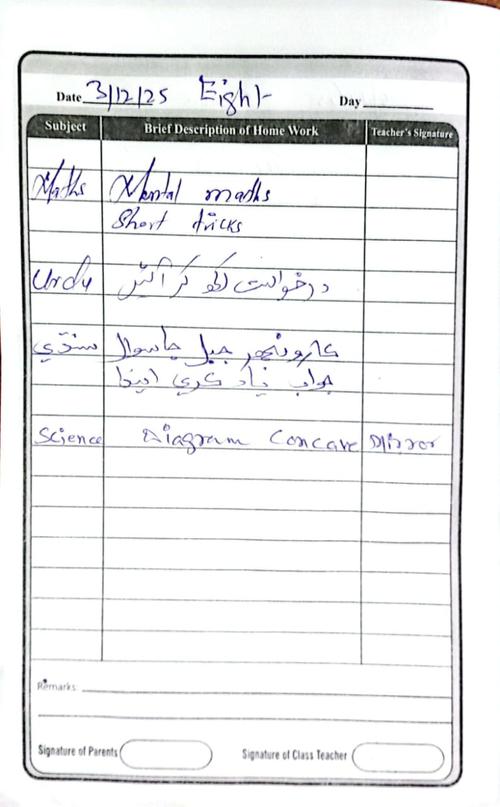 Date 3/12/25 Eight Day
Subject Brief Description of Home Work Teacher's Signature
Maths Mental maths
Short tricks
Urdu درخواست لکھ کر آئیں
سنڌي ڪارونجھر جبل جا سوال
جواب ياد ڪري ايندا
Science Diagram Concave Mirror
Remarks:
Signature of Parents Signature of Class Teacher